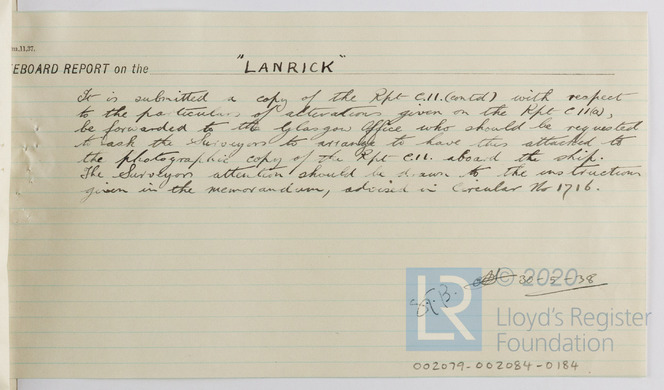 m.11,37.
EBOARD REPORT on the "LANRICK"
It is submitted a copy of the Rpt C.11.(contd) with respect
to the particulars of alterations given on the Rpt C11(a),
be forwarded to the Glasgow Office who should be requested
to ask the Surveyors to arrange to have this attached to
the photographic copy of the Rpt C.11. aboard the ship.
The Surveyors attention should be drawn to the instructions
given in the memorandum, advised in Circular No 1716.
© 2020
-38
LR
Lloyd's Register
Foundation
002079-002084-0184